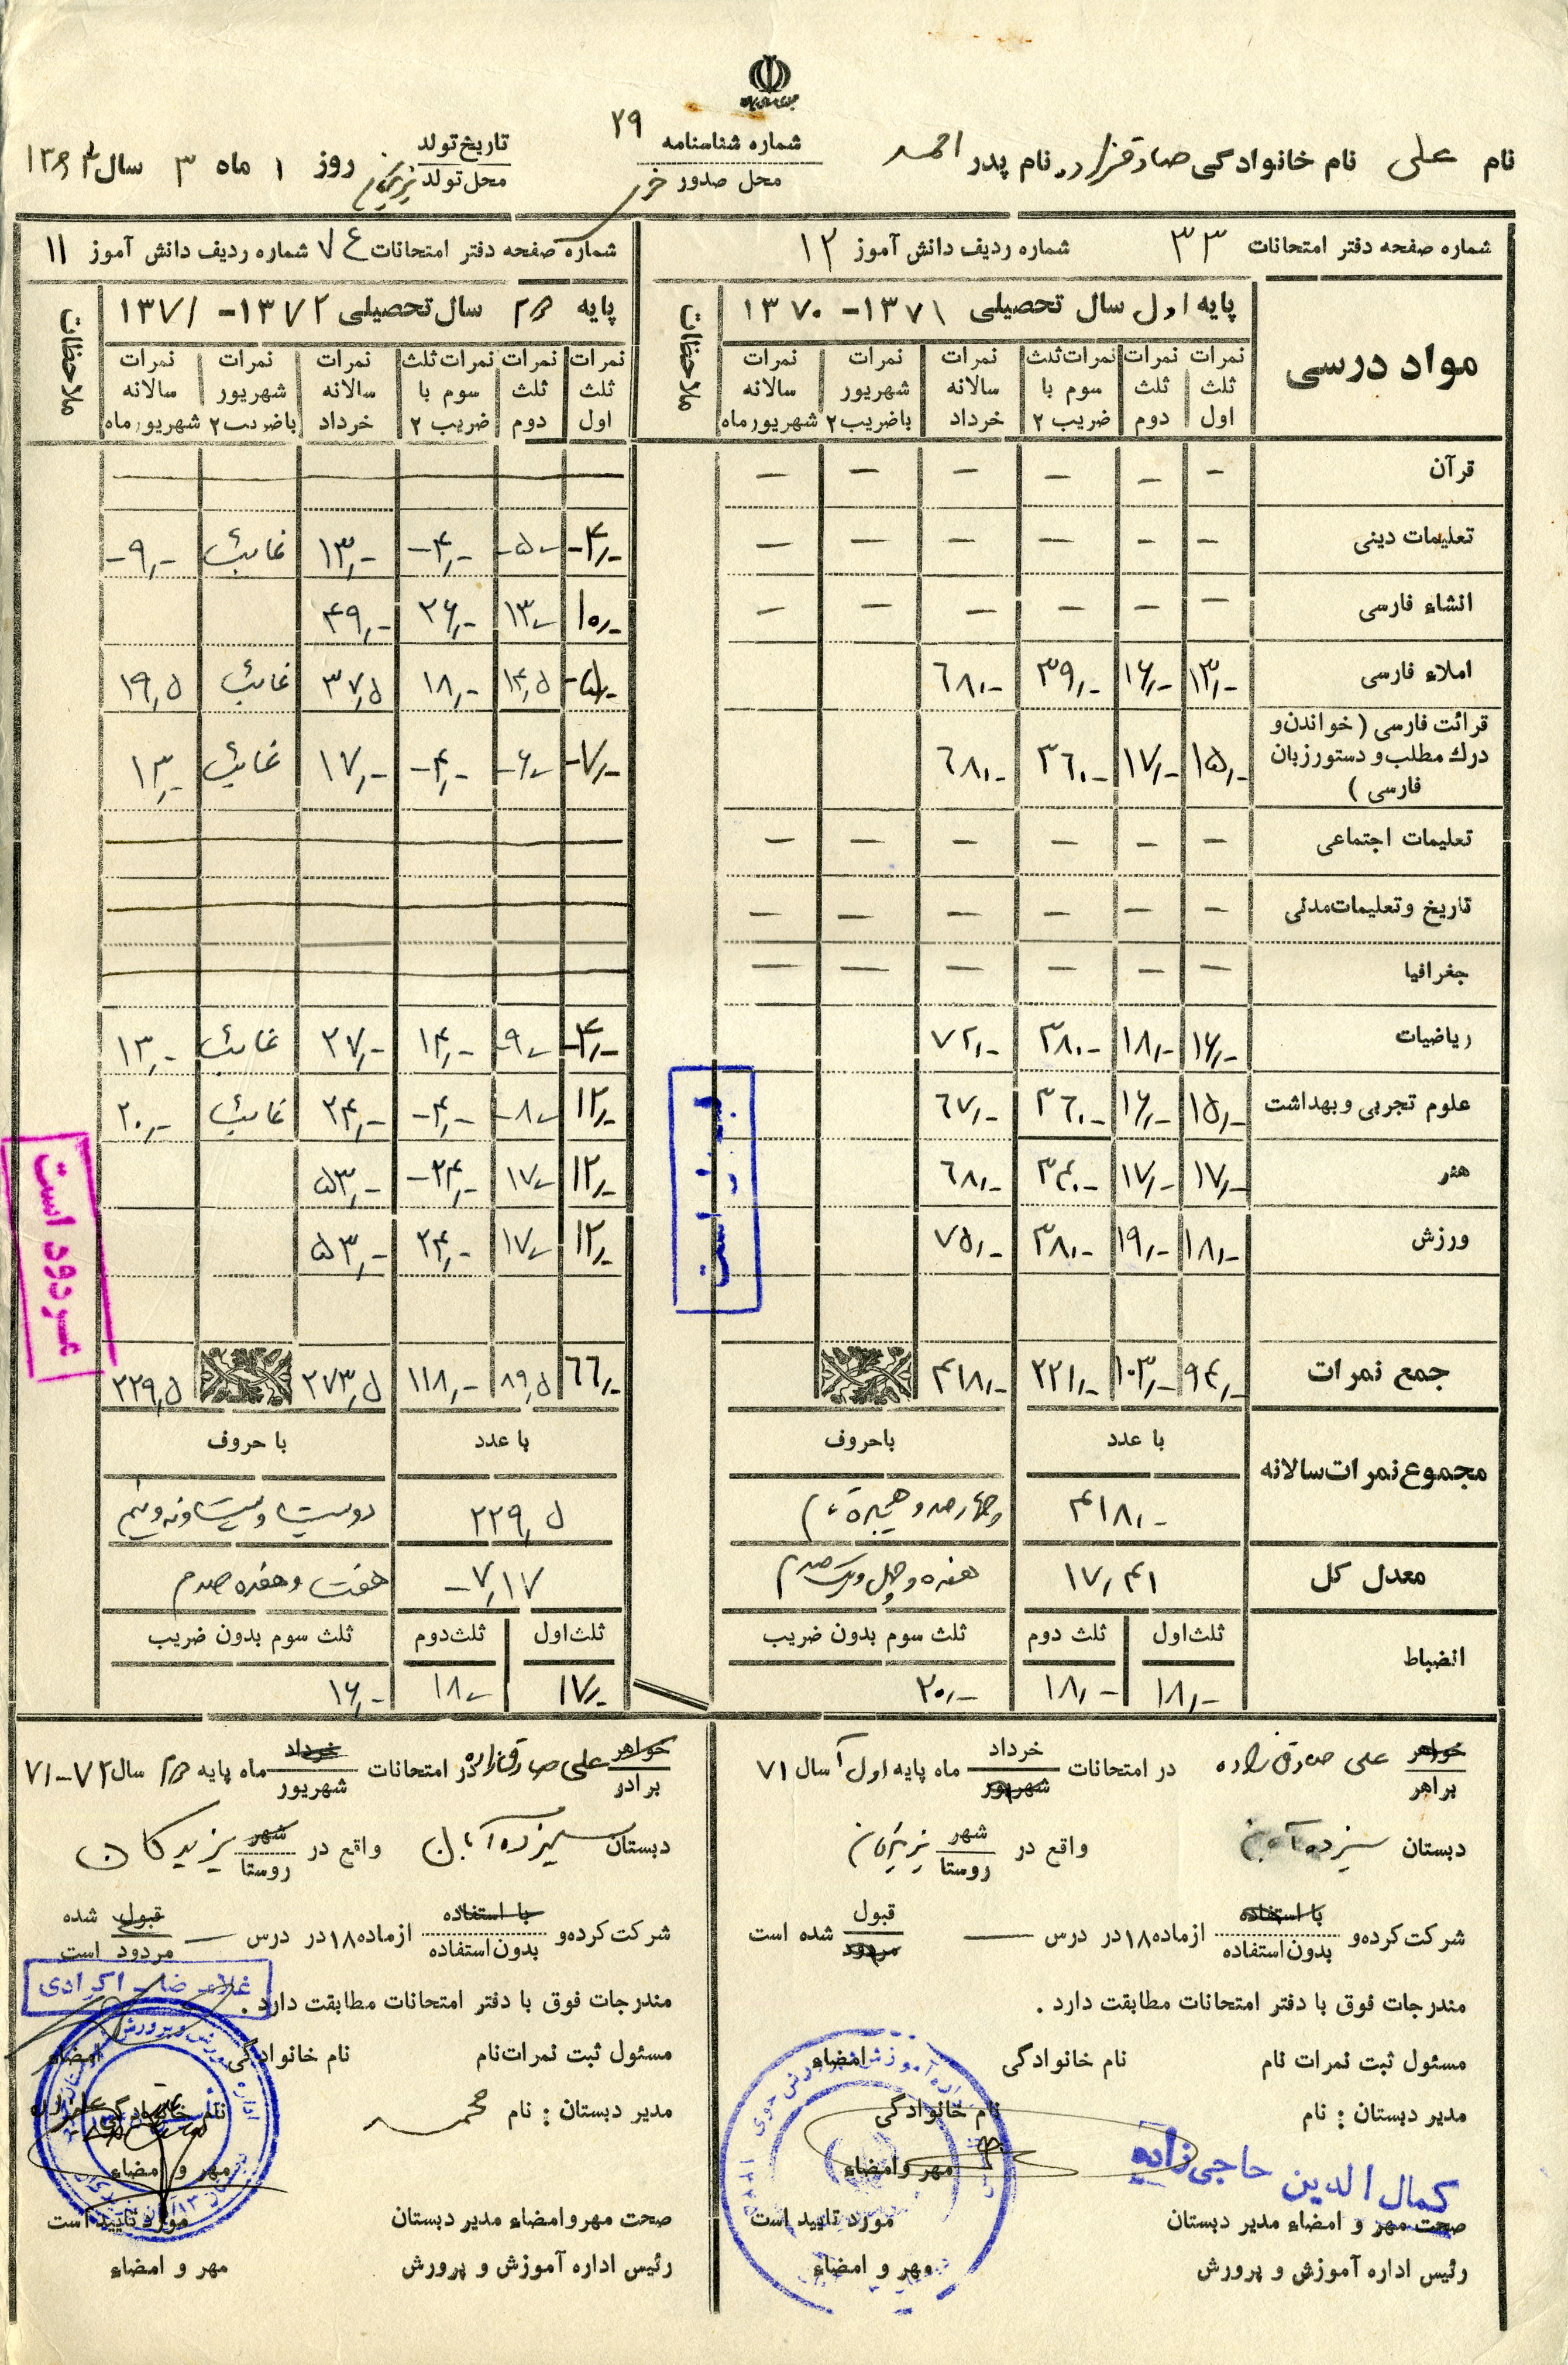 نام علی نام خانوادگی صادقزاده نام پدر احمد
شماره شناسنامه ۲۹
محل صدور خوی
تاریخ تولد روز ۱ ماه ۳ سال
محل تولد یزیدکان
شماره صفحه دفتر امتحانات ۳۳ شماره ردیف دانش آموز ۱۲
شماره صفحه دفتر امتحانات ۷۴ شماره ردیف دانش آموز ۱۱
مواد درسی
پایه اول سال تحصیلی ۱۳۷۱ - ۱۳۷۰
ملاحظات
پایه دوم سال تحصیلی ۱۳۷۲ - ۱۳۷۱
ملاحظات
نمرات ثلث اول
نمرات ثلث دوم
نمرات ثلث سوم با ضریب ۲
نمرات سالانه خرداد
نمرات شهریور باضریب ۲
نمرات سالانه شهریور ماه
نمرات ثلث اول
نمرات ثلث دوم
نمرات ثلث سوم با ضریب ۲
نمرات سالانه خرداد
نمرات شهریور باضریب ۲
نمرات سالانه شهریور ماه
قرآن – – – – – –
تعلیمات دینی – – – – – – ۴,- ۵- ۴,- ۱۳,- غائب ۹,-
انشاء فارسی – – – – – – ۱۰,- ۱۳,- ۲۶,- ۴۹,-
املاء فارسی ۱۳,- ۱۶,- ۳۹,- ۶۸,- ۵,- ۱۴,۵ ۱۸,- ۳۷,۵ غائب ۱۹,۵
قرائت فارسی (خواندن و درك مطلب و دستور زبان فارسی) ۱۵,- ۱۷,- ۳۶,- ۶۸,- ۷,- ۶,- ۴,- ۱۷,- غائب ۱۳,-
تعلیمات اجتماعی – – – – – –
تاریخ و تعلیمات مدنی – – – – – –
جغرافیا – – – – – –
ریاضیات ۱۶,- ۱۸,- ۳۸,- ۷۲,- ۴,- ۹,- ۱۴,- ۲۷,- غائب ۱۳,-
علوم تجربی و بهداشت ۱۵,- ۱۶,- ۳۶,- ۶۷,- ۱۲,- ۸,- ۴,- ۲۴,- غائب ۲۰,-
هنر ۱۷,- ۱۷,- ۳۴,- ۶۸,- ۱۲,- ۱۷,- ۲۴,- ۵۳,-
ورزش ۱۸,- ۱۹,- ۳۸,- ۷۵,- ۱۲,- ۱۷,- ۲۴,- ۵۳,-
قبول است
مردود است
جمع نمرات ۹۴,- ۱۰۳,- ۲۲۱,- ۴۱۸,- ۶۶,- ۸۹,۵ ۱۱۸,- ۲۷۳,۵ ۲۲۹,۵
مجموع نمرات سالانه
با عدد باحروف با عدد با حروف
۴۱۸,- چهارصد و هیجده ۲۲۹,۵ دویست و بیست و نه و نیم
معدل کل ۱۷,۴۱ هفده و چهل و یک صدم ۷,۱۷ هفت و هفده صدم
انضباط
ثلث اول ثلث دوم ثلث سوم بدون ضریب ثلث اول ثلث دوم ثلث سوم بدون ضریب
۱۸,- ۱۸,- ۲۰,- ۱۷,- ۱۸,- ۱۶,-
خواهر براهر علی صادق زاده در امتحانات خرداد شهریور ماه پایه اول سال ۷۱
دبستان سیزده آبان واقع در شهر روستا یزیدکان
شرکت کرده و با استفاده بدون استفاده از ماده ۱۸ در درس — قبول مردود شده است
مندرجات فوق با دفتر امتحانات مطابقت دارد .
مسئول ثبت نمرات نام نام خانوادگی امضاء
مدیر دبستان : نام نام خانوادگی
کمال الدین حاجی زاده
مهر و امضاء
صحت مهر و امضاء مدیر دبستان مورد تایید است
رئیس اداره آموزش و پرورش مهر و امضاء
خواهر برادر علی صادق زاده در امتحانات خرداد شهریور ماه پایه دوم سال ۷۲-۷۱
دبستان سیزده آبان واقع در شهر روستا یزیدکان
شرکت کرده و با استفاده بدون استفاده از ماده ۱۸ در درس — قبول مردود شده است
غلامرضا اکرادی
مندرجات فوق با دفتر امتحانات مطابقت دارد .
مسئول ثبت نمرات نام نام خانوادگی امضاء
مدیر دبستان : نام محمد نام خانوادگی
مهر و امضاء
صحت مهر و امضاء مدیر دبستان مورد تایید است
رئیس اداره آموزش و پرورش مهر و امضاء